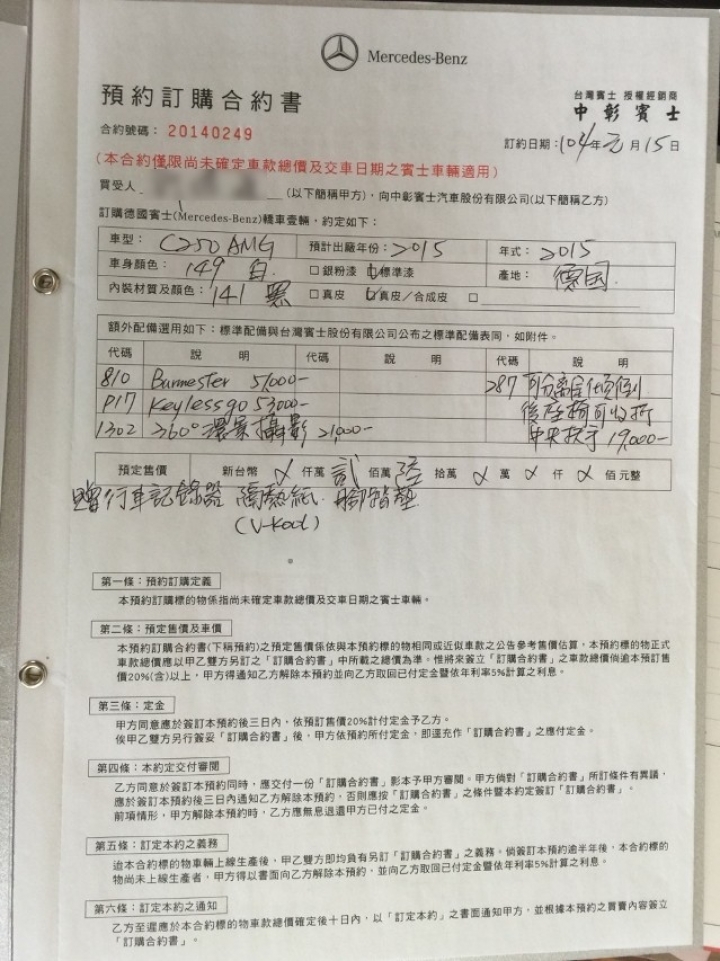 Mercedes-Benz
預約訂購合約書
台灣賓士 授權經銷商
中彰賓士
合約號碼：20140249
訂約日期：104年元月15日
(本合約僅限尚未確定車款總價及交車日期之賓士車輛適用)
買受人 (以下簡稱甲方)，向中彰賓士汽車股份有限公司(以下簡稱乙方)
訂購德國賓士(Mercedes-Benz)轎車壹輛，約定如下：
車型：C250 AMG 預計出廠年份：2015 年式：2015
車身顏色：149 白 □銀粉漆 □標準漆 產地：德国
內裝材質及顏色：141 黑 □真皮 □真皮/合成皮 □
額外配備選用如下：標準配備與台灣賓士股份有限公司公布之標準配備表同，如附件。
代碼 說明 代碼 說明 代碼 說明
810 Burmester 51,000- 287 可分離全傾倒
P17 Keylessgo 53000- 後座椅可收折
1302 360°環景攝影 21,000- 中央扶手 19,000-
預定售價 新台幣 仟萬 貳 佰萬 陸 拾萬 萬 仟 佰元整
贈行車記錄器 隔熱紙 腳踏墊
(V-Kool)
第一條：預約訂購定義
本預約訂購標的物係指尚未確定車款總價及交車日期之賓士車輛。
第二條：預定售價及車價
本預約訂購合約書(下稱預約)之預定售價係依與本預約標的物相同或近似車款之公告參考售價估算，本預約標的物正式
車款總價應以甲乙雙方另訂之「訂購合約書」中所載之總價為準。惟將來簽立「訂購合約書」之車款總價倘逾本預訂售
價20%(含)以上，甲方得通知乙方解除本預約並向乙方取回已付定金暨依年利率5%計算之利息。
第三條：定金
甲方同意應於簽訂本預約後三日內，依預訂售價20%計付定金予乙方。
俟甲乙雙方另行簽妥「訂購合約書」後，甲方依預約所付定金，即逕充作「訂購合約書」之應付定金。
第四條：本約定交付審閱
乙方同意於簽訂本預約同時，應交付一份「訂購合約書」影本予甲方審閱。甲方倘對「訂購合約書」所訂條件有異議，
應於簽訂本預約後三日內通知乙方解除本預約，否則應按「訂購合約書」之條件暨本約定簽訂「訂購合約書」。
前項情形，甲方解除本預約時，乙方應無息退還甲方已付之定金。
第五條：訂定本約之義務
迨本合約標的物車輛上線生產後，甲乙雙方即均負有另訂「訂購合約書」之義務。倘簽訂本預約逾半年後，本合約標的
物尚未上線生產者，甲方得以書面向乙方解除本預約，並向乙方取回已付定金暨依年利率5%計算之利息。
第六條：訂定本約之通知
乙方至遲應於本合約標的物車款總價確定後十日內，以「訂定本約」之書面通知甲方，並根據本預約之買賣內容簽立
「訂購合約書」。